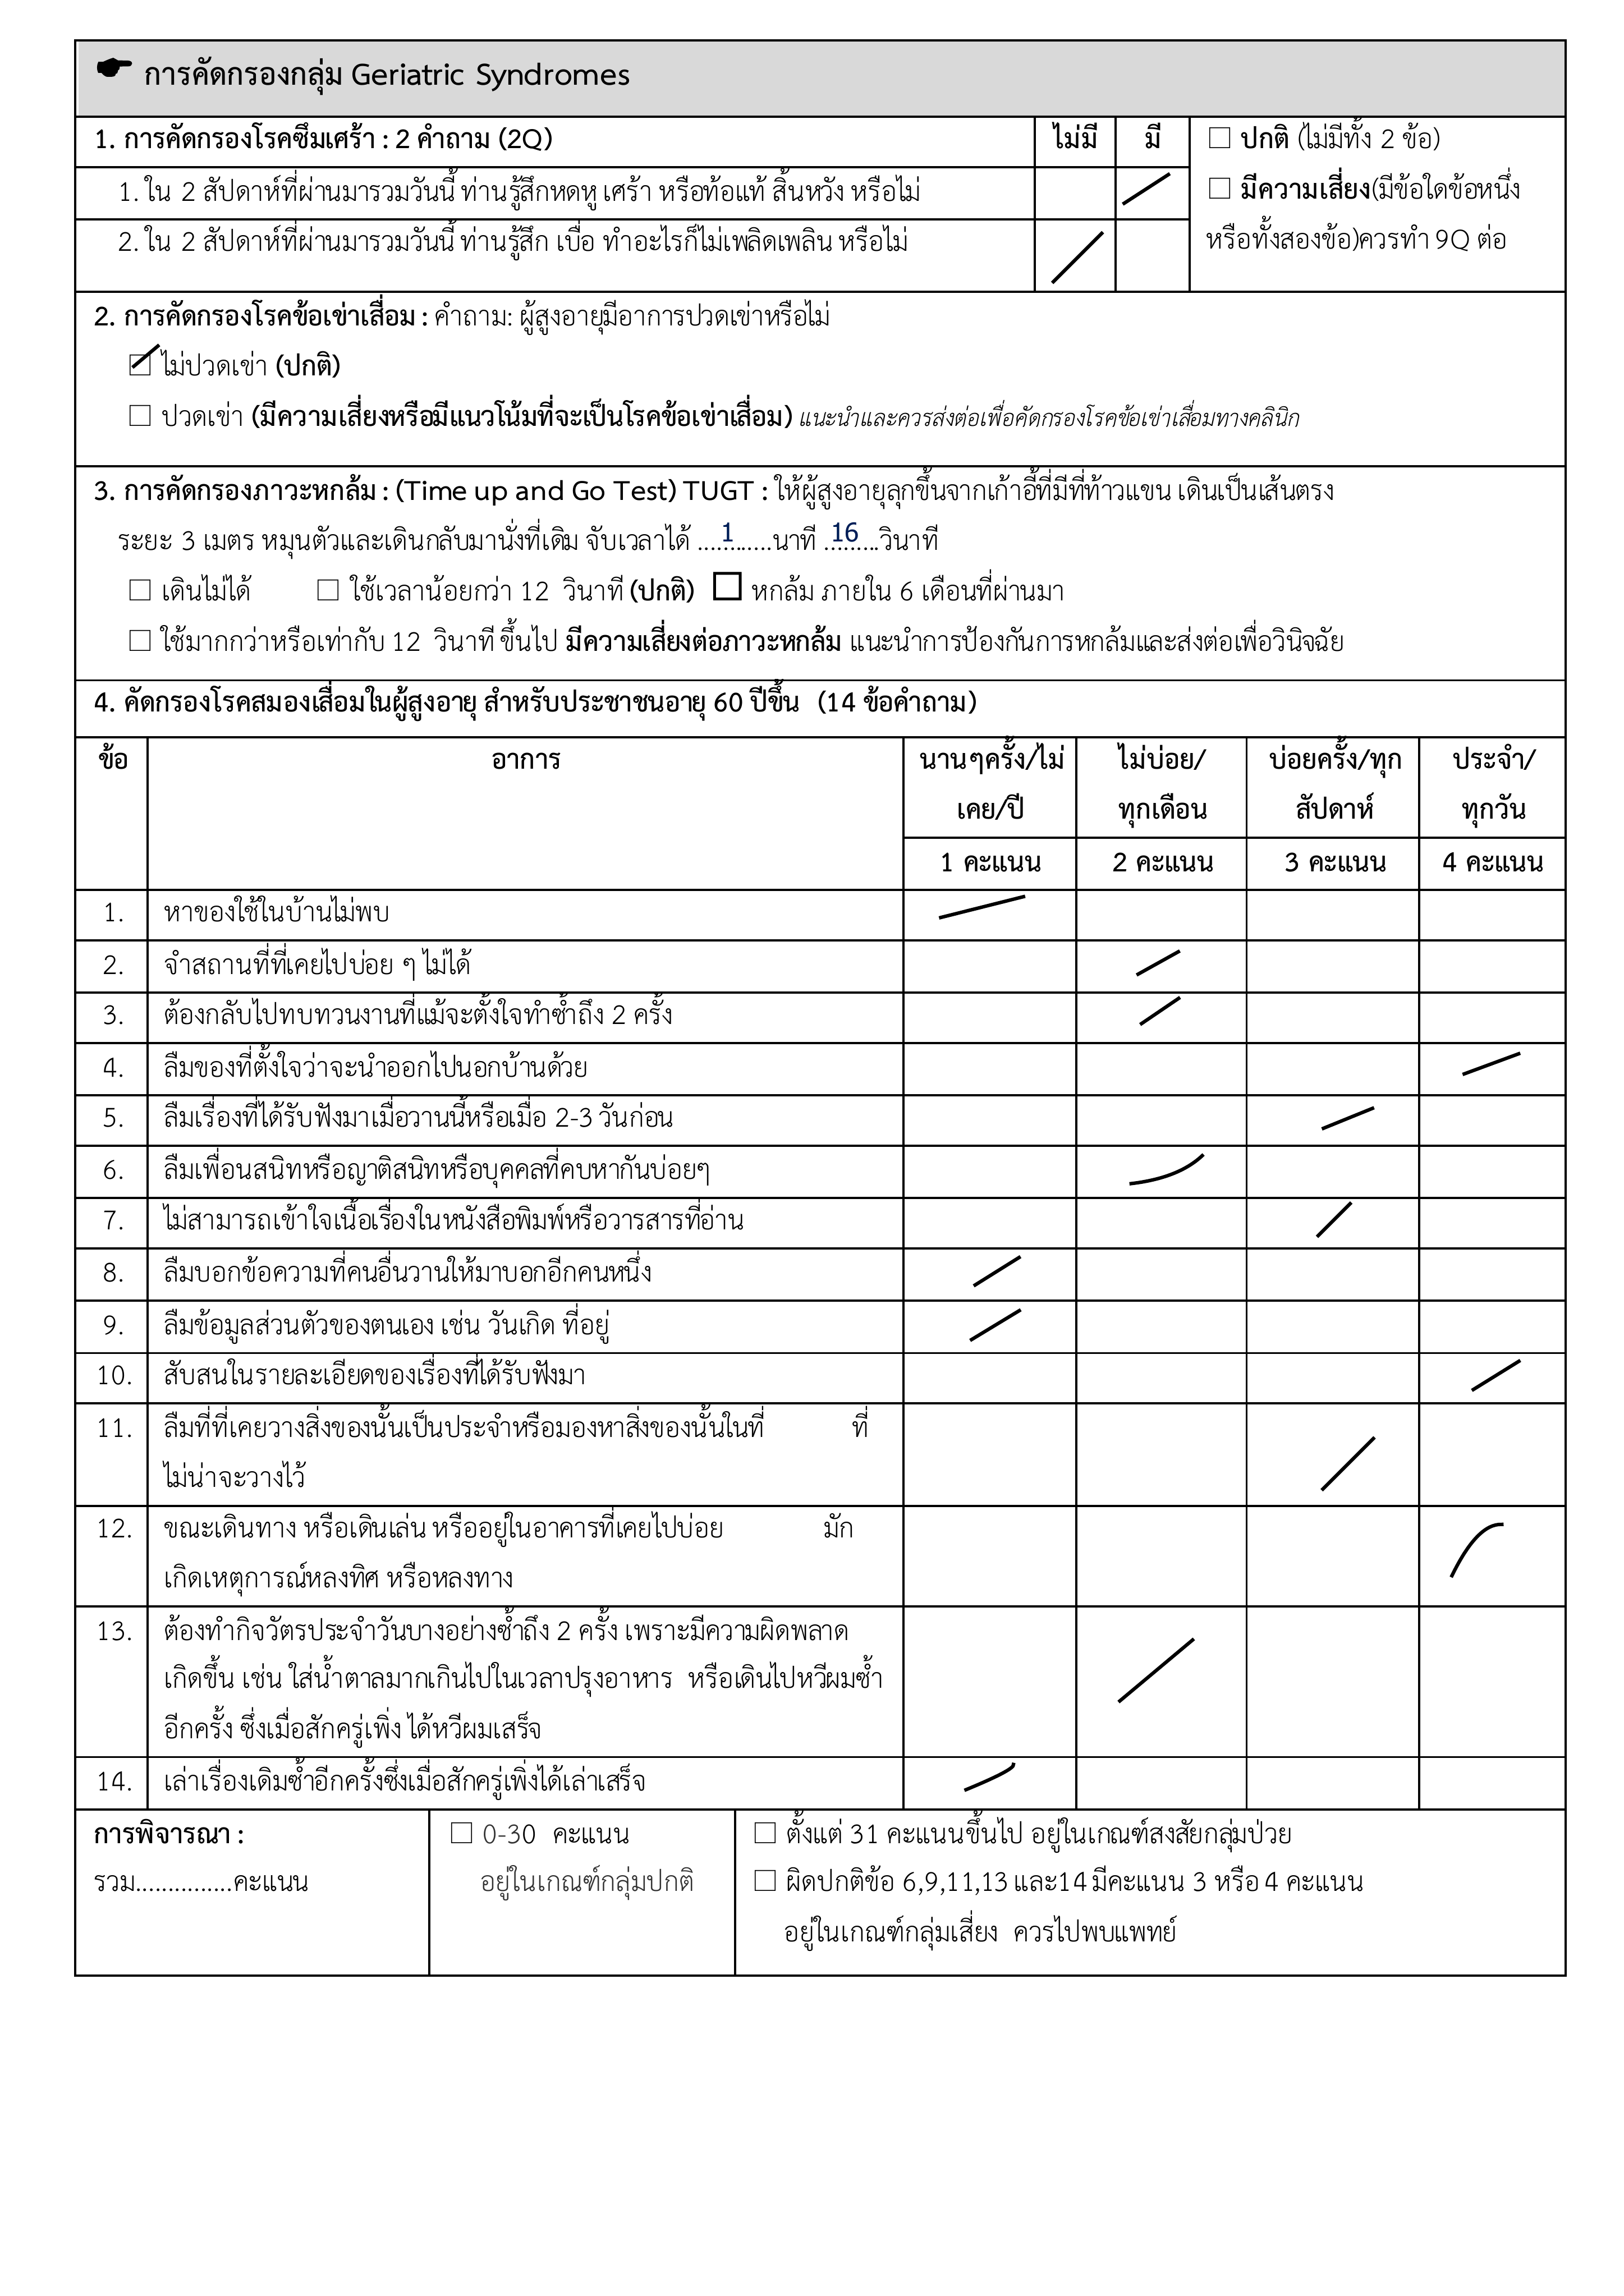 การคัดกรองกลุ่ม Geriatric Syndromes
1. การคัดกรองโรคซึมเศร้า : 2 คำถาม (2Q) ไม่มี มี
☐ ปกติ (ไม่มีทั้ง 2 ข้อ)
1. ใน 2 สัปดาห์ที่ผ่านมารวมวันนี้ ท่านรู้สึกหดหู่ เศร้า หรือท้อแท้ สิ้นหวัง หรือไม่
☐ มีความเสี่ยง(มีข้อใดข้อหนึ่ง
2. ใน 2 สัปดาห์ที่ผ่านมารวมวันนี้ ท่านรู้สึก เบื่อ ทำอะไรก็ไม่เพลิดเพลิน หรือไม่
หรือทั้งสองข้อ)ควรทำ 9Q ต่อ
2. การคัดกรองโรคข้อเข่าเสื่อม : คำถาม: ผู้สูงอายุมีอาการปวดเข่าหรือไม่
☐ ไม่ปวดเข่า (ปกติ)
☐ ปวดเข่า (มีความเสี่ยงหรือมีแนวโน้มที่จะเป็นโรคข้อเข่าเสื่อม) แนะนำและควรส่งต่อเพื่อคัดกรองโรคข้อเข่าเสื่อมทางคลินิก
3. การคัดกรองภาวะหกล้ม : (Time up and Go Test) TUGT : ให้ผู้สูงอายุลุกขึ้นจากเก้าอี้ที่มีที่ท้าวแขน เดินเป็นเส้นตรง
ระยะ 3 เมตร หมุนตัวและเดินกลับมานั่งที่เดิม จับเวลาได้ ....1....นาที ...16...วินาที
☐ เดินไม่ได้ ☐ ใช้เวลาน้อยกว่า 12 วินาที (ปกติ) ☐ หกล้ม ภายใน 6 เดือนที่ผ่านมา
☐ ใช้มากกว่าหรือเท่ากับ 12 วินาที ขึ้นไป มีความเสี่ยงต่อภาวะหกล้ม แนะนำการป้องกันการหกล้มและส่งต่อเพื่อวินิจฉัย
4. คัดกรองโรคสมองเสื่อมในผู้สูงอายุ สำหรับประชาชนอายุ 60 ปีขึ้น (14 ข้อคำถาม)
ข้อ อาการ นานๆครั้ง/ไม่ ไม่บ่อย/ บ่อยครั้ง/ทุก ประจำ/
เคย/ปี ทุกเดือน สัปดาห์ ทุกวัน
1 คะแนน 2 คะแนน 3 คะแนน 4 คะแนน
1. หาของใช้ในบ้านไม่พบ
2. จำสถานที่ที่เคยไปบ่อย ๆ ไม่ได้
3. ต้องกลับไปทบทวนงานที่แม้จะตั้งใจทำซ้ำถึง 2 ครั้ง
4. ลืมของที่ตั้งใจว่าจะนำออกไปนอกบ้านด้วย
5. ลืมเรื่องที่ได้รับฟังมาเมื่อวานนี้หรือเมื่อ 2-3 วันก่อน
6. ลืมเพื่อนสนิทหรือญาติสนิทหรือบุคคลที่คบหากันบ่อยๆ
7. ไม่สามารถเข้าใจเนื้อเรื่องในหนังสือพิมพ์หรือวารสารที่อ่าน
8. ลืมบอกข้อความที่คนอื่นวานให้มาบอกอีกคนหนึ่ง
9. ลืมข้อมูลส่วนตัวของตนเอง เช่น วันเกิด ที่อยู่
10. สับสนในรายละเอียดของเรื่องที่ได้รับฟังมา
11. ลืมที่ที่เคยวางสิ่งของนั้นเป็นประจำหรือมองหาสิ่งของนั้นในที่ ที่
ไม่น่าจะวางไว้
12. ขณะเดินทาง หรือเดินเล่น หรืออยู่ในอาคารที่เคยไปบ่อย มัก
เกิดเหตุการณ์หลงทิศ หรือหลงทาง
13. ต้องทำกิจวัตรประจำวันบางอย่างซ้ำถึง 2 ครั้ง เพราะมีความผิดพลาด
เกิดขึ้น เช่น ใส่น้ำตาลมากเกินไปในเวลาปรุงอาหาร หรือเดินไปหวีผมซ้ำ
อีกครั้ง ซึ่งเมื่อสักครู่เพิ่ง ได้หวีผมเสร็จ
14. เล่าเรื่องเดิมซ้ำอีกครั้งซึ่งเมื่อสักครู่เพิ่งได้เล่าเสร็จ
การพิจารณา : ☐ 0-30 คะแนน ☐ ตั้งแต่ 31 คะแนนขึ้นไป อยู่ในเกณฑ์สงสัยกลุ่มป่วย
รวม...............คะแนน อยู่ในเกณฑ์กลุ่มปกติ ☐ ผิดปกติข้อ 6,9,11,13 และ14 มีคะแนน 3 หรือ 4 คะแนน
อยู่ในเกณฑ์กลุ่มเสี่ยง ควรไปพบแพทย์